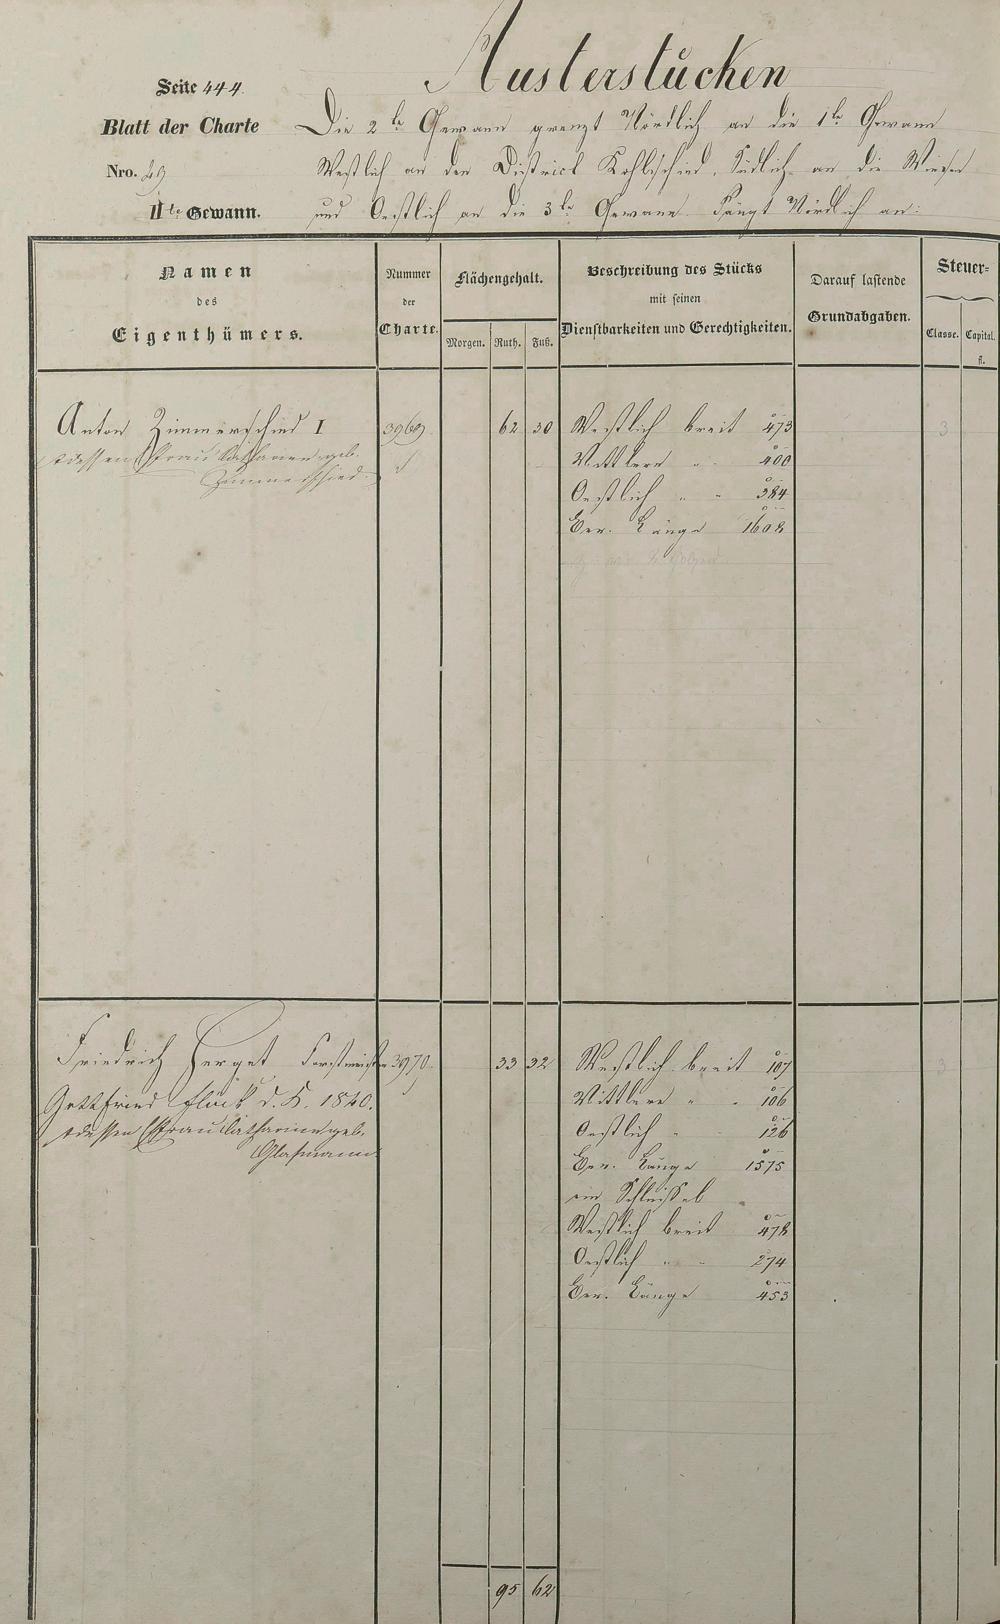 Austerstücken
Seite 444.
Blatt der Charte
Nro. 29
IIte Gewann.
Die 2te Gewann grenzt Nördlich an die 1te Gewann
Westlich an den District Kohlischied, Südlich an die Wiesen
und Oestlich an die 3te Gewann. Fängt Nördlich an:
Namen
des
Eigenthümers.
Nummer
der
Charte.
Flächengehalt.
Morgen. Ruth. Fuß.
Beschreibung des Stücks
mit seinen
Dienstbarkeiten und Gerechtigkeiten.
Darauf lastende
Grundabgaben.
Steuer=
Classe. Capital.
fl.
Anton Zimmerschied I 3969 62 30 Westlich breit 473 3
dessen Frau Katharine geb. Mittlere " " 400
Zimmerschied
Oestlich " " 384
Ger. Länge 1608
Friedrich Herget Forstmeister 3970 33 32 Westlich breit 107 3
Gottfried Flück d. K. 1840. Mittlere " " 106
dessen Frau Catharine geb. Oestlich " " 126
Glasmann
Ger. Länge 1575
ein Schlüssel
Westlich breit 478
Oestlich " " 274
Ger. Länge 453
95 62